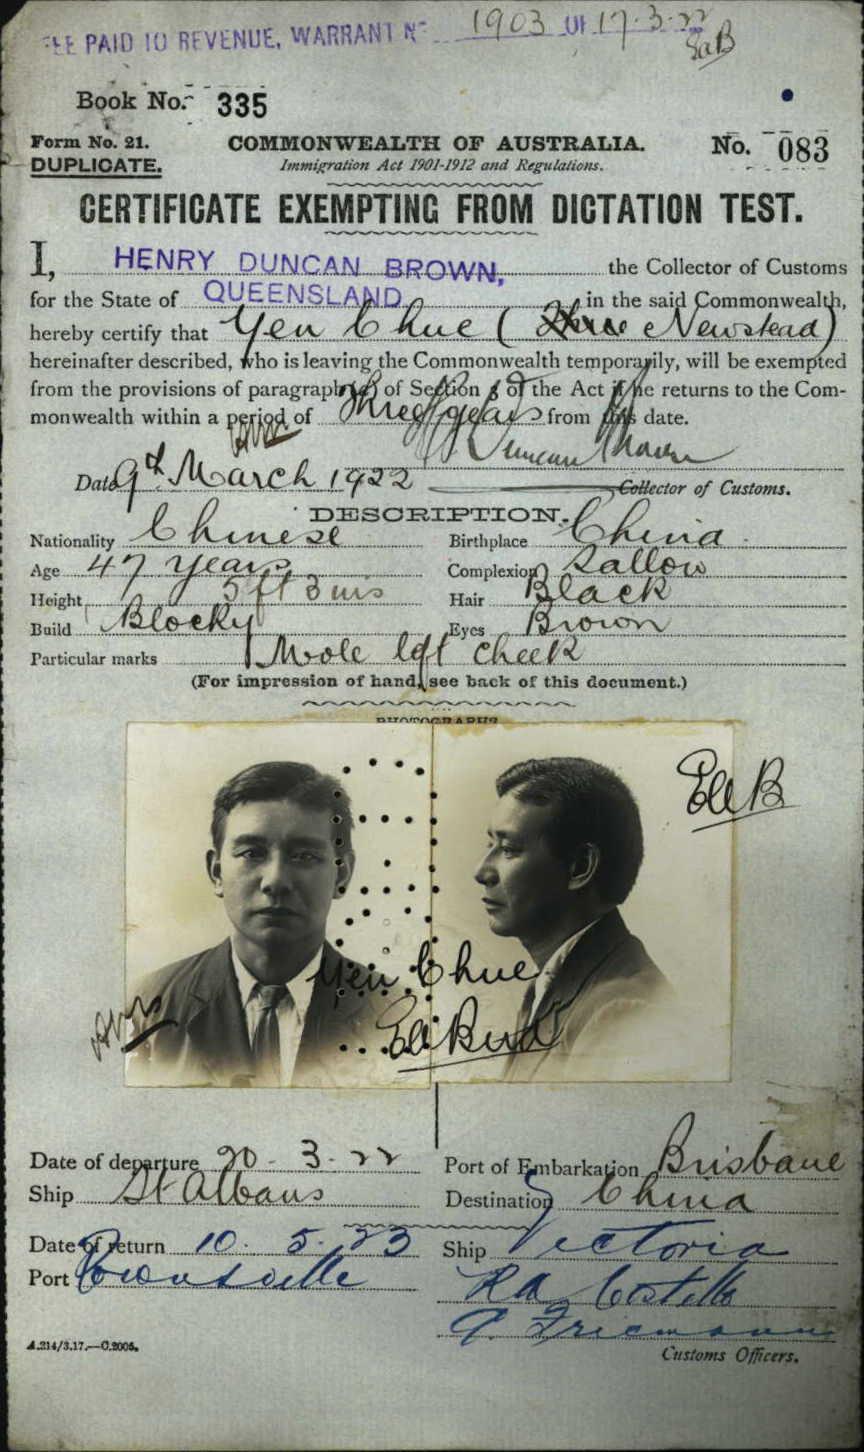 FEE PAID TO REVENUE, WARRANT No 1903 OF 17-3-22
EeB
Book No. 335
Form No. 21.
COMMONWEALTH OF AUSTRALIA.
No. 083
DUPLICATE.
Immigration Act 1901-1912 and Regulations.
CERTIFICATE EXEMPTING FROM DICTATION TEST.
I, HENRY DUNCAN BROWN, the Collector of Customs
for the State of QUEENSLAND in the said Commonwealth,
hereby certify that Yen Chue ( Newstead)
hereinafter described, who is leaving the Commonwealth temporarily, will be exempted
from the provisions of paragraph (a) of Section 3 of the Act if he returns to the Com-
monwealth within a period of Three years from this date.
Duncan Brown
Date 9th March 1922
Collector of Customs.
DESCRIPTION.
Nationality Chinese
Birthplace China
Age 47 years
Complexion Sallow
Height 5 ft 3 ins
Hair Black
Build Blocky
Eyes Brown
Particular marks Mole left cheek
(For impression of hand, see back of this document.)
PHOTOGRAPHS
EeB
Yen Chue
Date of departure 20-3-22
Port of Embarkation Brisbane
Ship St Albans
Destination China
Date of return 10. 5. 23
Ship Victoria
Port Townsville
Costello
Customs Officers.
A.214/3.17.—C.2005.